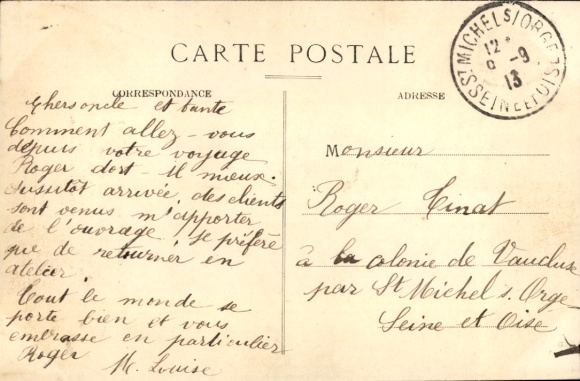 CARTE POSTALE
CORRESPONDANCE
Chers oncle et tante
Comment allez-vous
depuis votre voyage
Roger dort-il mieux.
Aussitôt arrivée, des clients
sont venus m'apporter
de l'ouvrage, je préfère
que de retourner en
atelier.
Tout le monde se
porte bien et vous
embrasse en particulier
Roger
M. Louise
ADRESSE
Monsieur
Roger Tinat
à la colonie de Vaucluse
par St Michel s. Orge
Seine et Oise
ST MICHEL S/ ORGE
12 *
-9
13
SEINE ET OISE